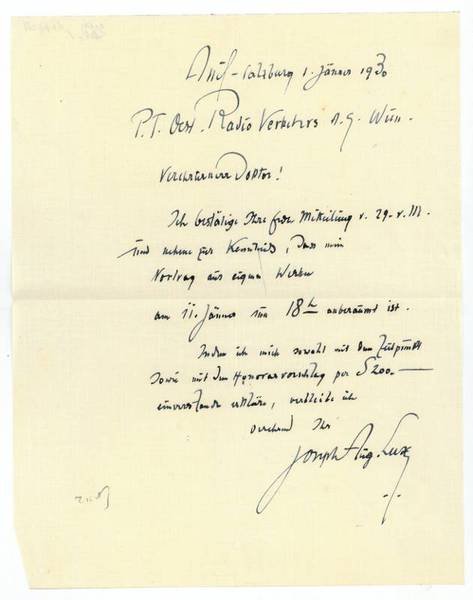 Anif-Salzburg 1. Jänner 1930
P.T. Oest. Radio Verkehrs A.G. Wien.
Verehrter Herr Doktor!
Ich bestätige Ihre frdl. Mitteilung v. 29. v. M.
und nehme zur Kenntnis, dass mein
Vortrag aus eigenen Werken
am 11. Jänner um 18h anberaumt ist.
Indem ich mich sowohl mit dem Zeitpunkt
sowie mit dem Honorarvorschlag per S 200.—
einverstanden erkläre, verbleibe ich
verehrend Ihr
Joseph Aug. Lux